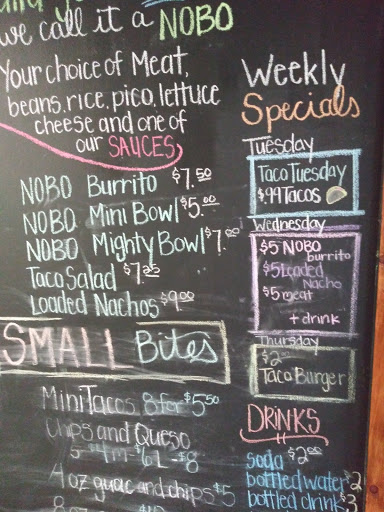 we call it a NOBO
Your choice of Meat,
beans, rice, pico, lettuce
cheese and one of
our SAUCES
NOBO Burrito $7.50
NOBO Mini Bowl $5.00
NOBO Mighty Bowl $7.00
Taco Salad $7.25
Loaded Nachos $9.00
SMALL Bites
Mini Tacos 8 for $5.50
Chips and Queso
S-$4 M-$6 L-$8
4 oz guac and chips $5
8 oz
Weekly
Specials
Tuesday
Taco Tuesday
$.99 Tacos
Wednesday
$5 NOBO
burrito
$5 Loaded
Nacho
$5 meat
+ drink
Thursday
$2.00
Taco Burger
DRINKS
soda $2.00
bottled water $2
bottled drink $3